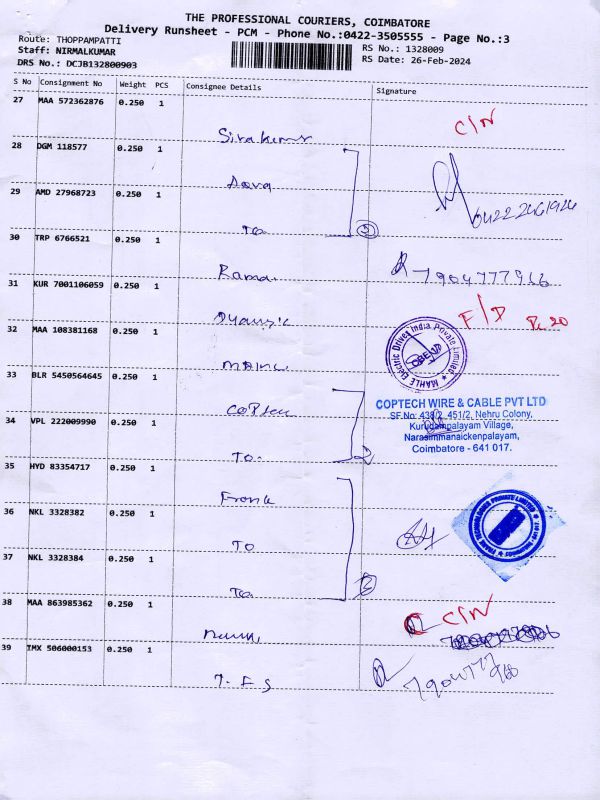 THE PROFESSIONAL COURIERS, COIMBATORE
Delivery Runsheet - PCM - Phone No.:0422-3505555 - Page No.:3
Route: THOPPAMPATTI
Staff: NIRMALKUMAR
DRS No.: DCJB132800903
RS No.: 1328009
RS Date: 26-Feb-2024
S No Consignment No Weight PCS Consignee Details Signature
27 MAA 572362876 0.250 1
Sivakumar C/N
28 DGM 118577 0.250 1
29 AMD 27968723 0.250 1
To
30 TRP 6766521 0.250 1
Rama
31 KUR 7001106059 0.250 1
F/D
32 MAA 108381168 0.250 1
MAHLE Electric Drives India Private Limited
33 BLR 5450564645 0.250 1
Coptech
COPTECH WIRE & CABLE PVT LTD
SF.No: 438/2, 451/2, Nehru Colony,
Kurudampalayam Village,
Narasimmanaickenpalayam,
Coimbatore - 641 017.
34 VPL 222009990 0.250 1
To. 2
35 HYD 83354717 0.250 1
36 NKL 3328382 0.250 1
To
37 NKL 3328384 0.250 1
To
38 MAA 863985362 0.250 1
C/N
39 TMX 506000153 0.250 1